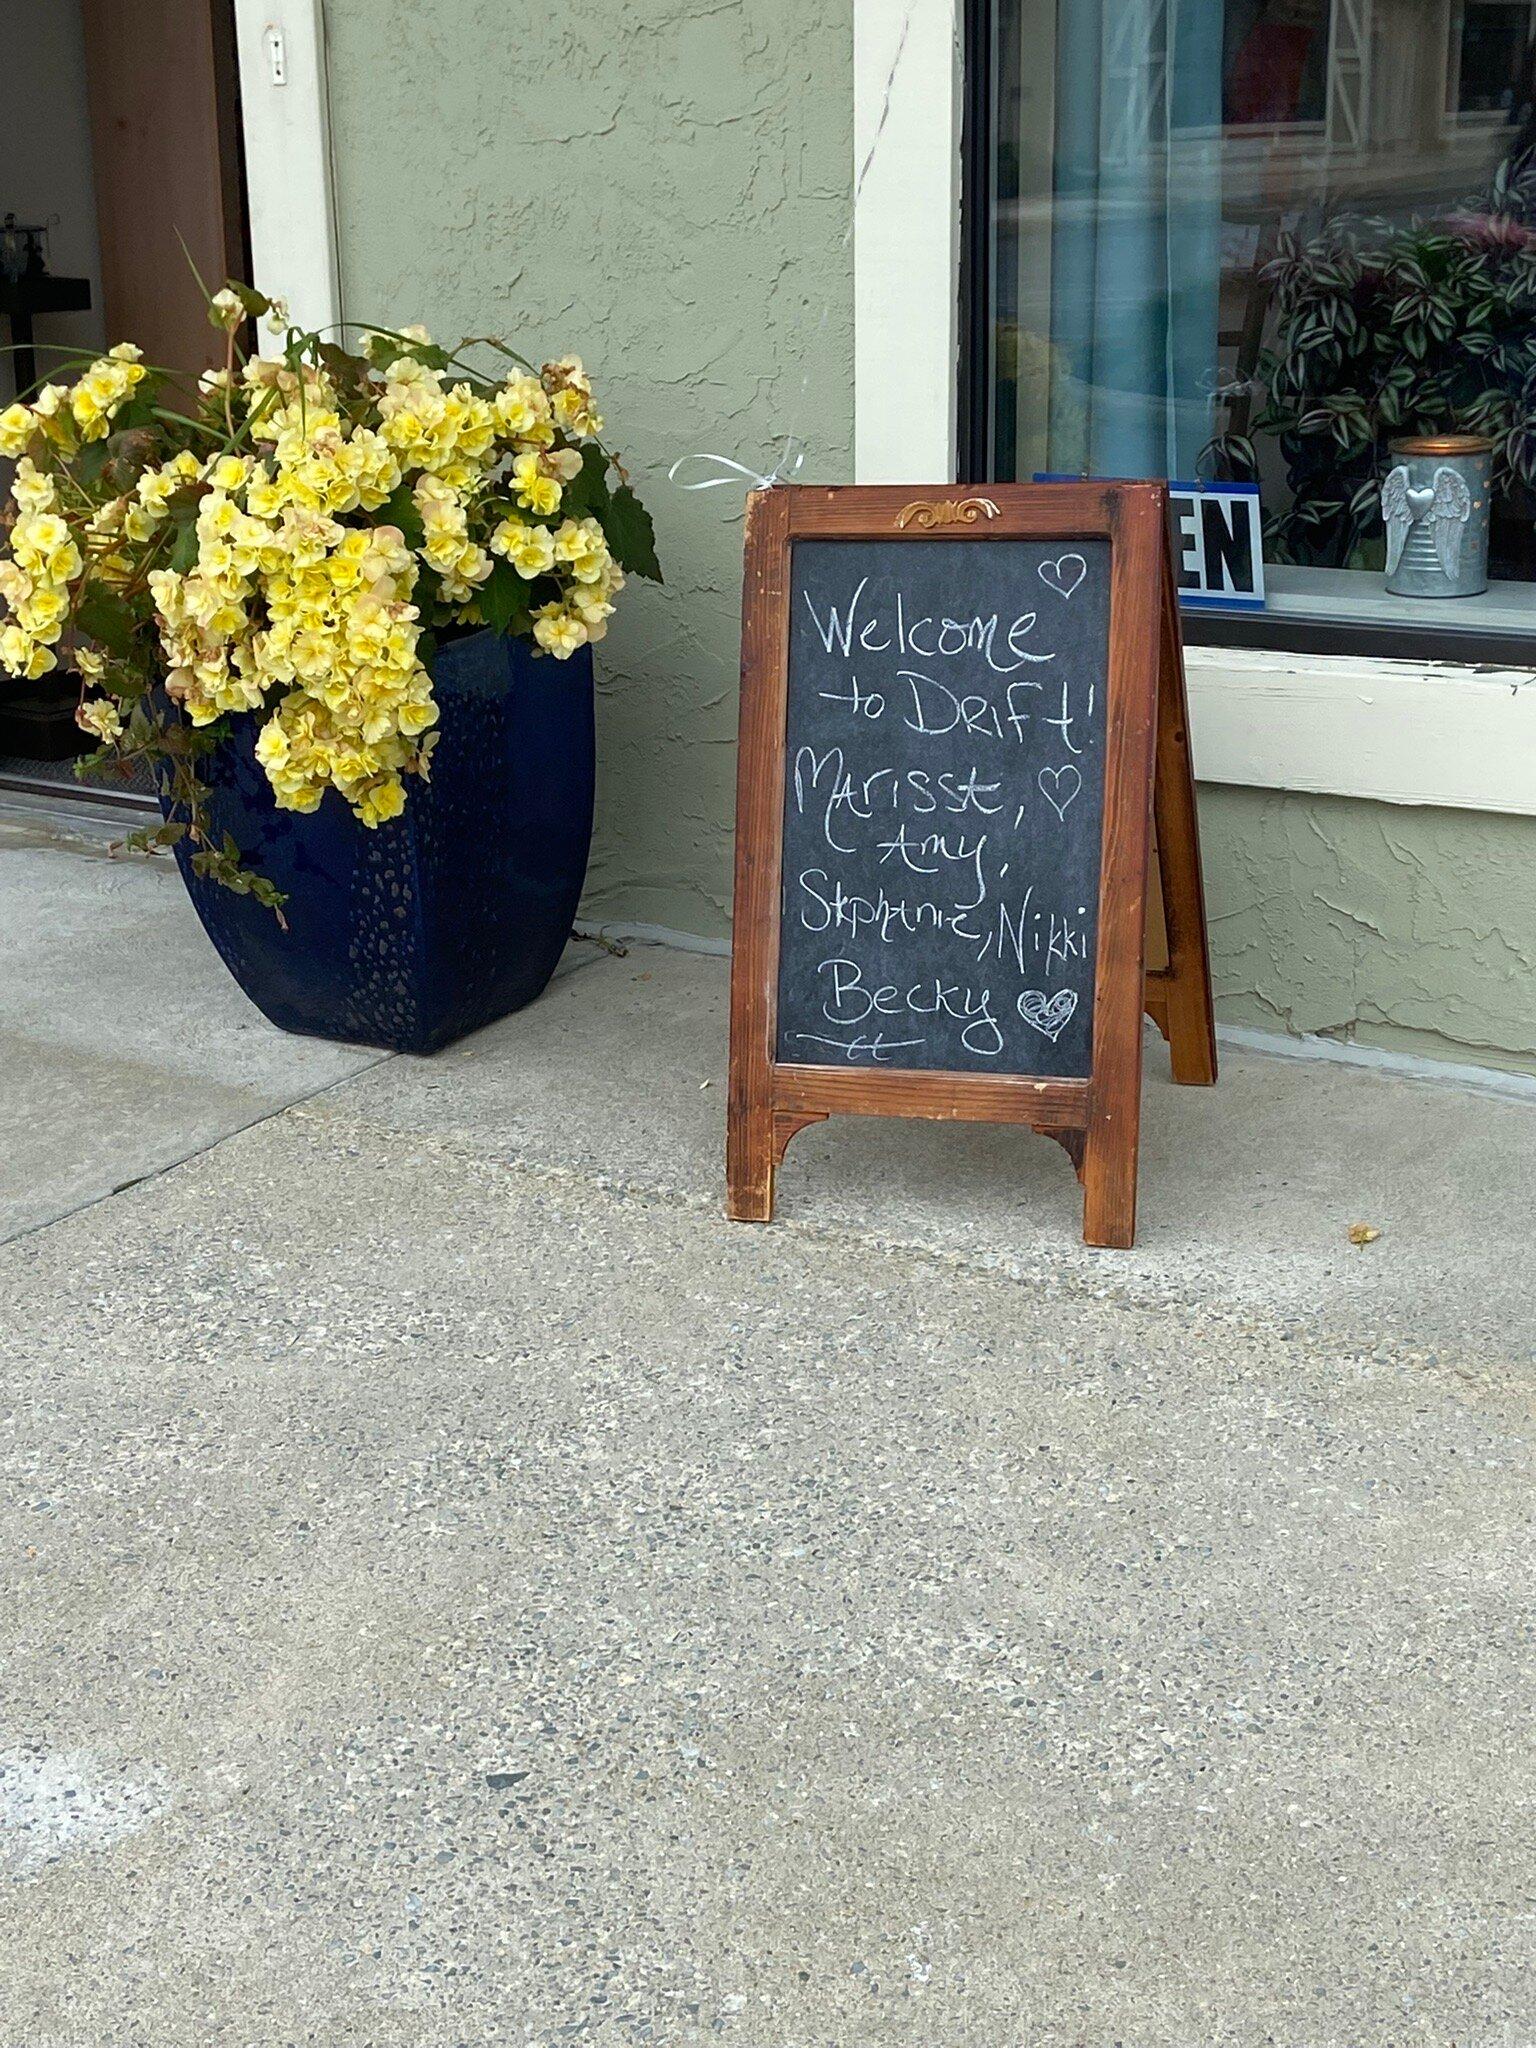 Welcome
to DRIFT!
MArissa,
Amy,
Stephanie, Nikki
Becky
EN